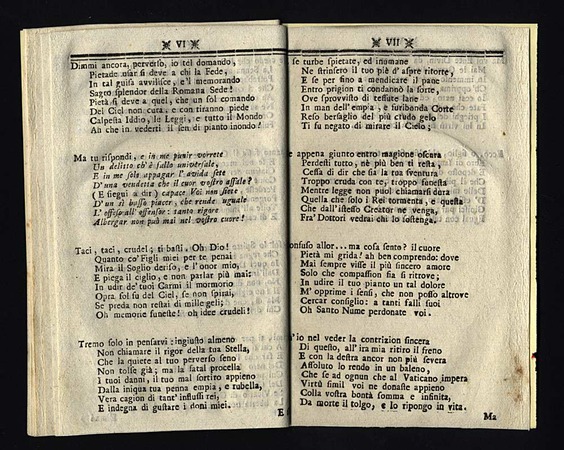 VI
Dimmi ancora, perverso, io tel domando,
Pietade usar si deve a chi la Fede,
In tal guisa avvilisce, e'l memorando
Sagro splendor della Romana Sede!
Pietà si deve a quel, che un sol comando
Del Ciel non cura, e con tiranno piede
Calpesta Iddio, le Leggi, e tutto il Mondo
Ah che in vederti il sen di pianto inondo!
Ma tu rispondi, e in me punir vorrete
Un delitto ch'è fallo universale,
E in me solo appagar l'avida sete
D'una vendetta che il cuor vostro assale?
( E siegui a dir) capace Voi non siete
D'un sì basso piacer, che rende uguale
L'offeso all'offensor: tanto rigore
Albergar non può mai nel vostro cuore!
Taci, taci, crudel; ti basti, Oh Dio!
Quanto co' Figli miei per te penai
Mira il Soglio deriso, e l'onor mio,
E piega il ciglio, e non parlar più mai:
In udir de' tuoi Carmi il mormorio
Opra sol fu del Ciel, se non spirai,
Se preda non restai di mille geli;
Oh memorie funeste! oh idee crudeli!
Tremo solo in pensarvi: ingiusto almeno
Non chiamare il rigor della tua Stella,
Che la quiete al tuo perverso seno
Non tolse già; ma la fatal procella
I tuoi danni, il tuo mal sortiro appieno
Dalla iniqua tua penna empia, e rubella,
Vera cagion di tant' influssi rei,
E indegna di gustare i doni miei.
E
VII
se turbe spietate, ed inumane
Ne strinsero il tuo piè d'aspre ritorte,
E se per fino a mendicare il pane
Entro prigion ti condannò la sorte,
Ove sprovvisto di tessute lane
In man dell'empia, e furibonda Corte
Reso bersaglio del più crudo gelo
Ti fu negato di mirare il Cielo;
appena giunto entro magione oscura
Perdesti tutto, nè più ben ti resta,
Cessa di dir che sia la tua sventura
Troppo cruda con te, troppo funesta
Mentre legge non puoi chiamarsi dura
Quella che solo i Rei tormenta, e questa
Che dall'istesso Creator ne venga,
Fra' Dottori vedrai chi lo sostenga.
onfuso allor... ma cosa sento? il cuore
Pietà mi grida! ah ben comprendo: dove
Mai sempre visse il più sincero amore
Solo che compassion sia si ritrove;
In udire il tuo pianto un tal dolore
M'opprime i sensi, che non posso altrove
Cercar consiglio: a tanti falli suoi
Oh Santo Nume perdonate voi.
'io nel veder la contrizion sincera
Di questo, all'ira mia ritiro il freno
E con la destra ancor non più severa
Assoluto lo rendo in un baleno,
Che se ad ognun che al Vaticano impera
Virtù simil voi ne donaste appieno
Colla vostra bontà somma e infinita,
Da morte il tolgo, e lo ripongo in vita.
Ma